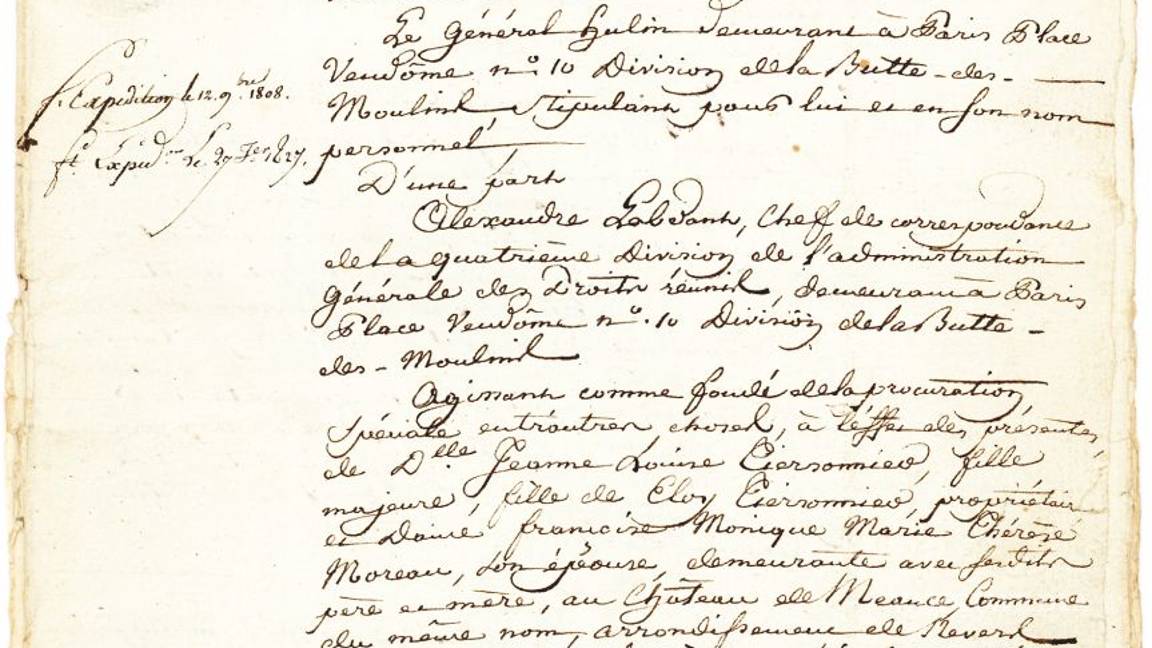 Le Général Hulin demeurant à Paris Place
Vendôme n.º 10 Division de la Butte-des-
Moulins, Stipulant pour lui et en son nom
personnel,
D'une part
Alexandre, Chef de correspondance
de la quatrième Division de l'administration
Générale des Droits réunis, demeurant à Paris
Place Vendôme n.º 10 Division de la Butte-
des-Moulins
Agissant comme fondé de la procuration
Spéciale entr'autres choses, à l'effet des présentes,
de Dlle Jeanne Louise Tiersonnier, fille
majeure, fille de Eloy Tiersonnier, propriétaire
et Dame françoise Monique Marie Thérèse
Moreau, son épouse, demeurante avec sesdits
père et mère, au Château de Meauce, Commune
du même nom, arrondissement de Nevers
f. Expédition le 12. 9bre 1808.
ft. Expédon Le 27 1827.